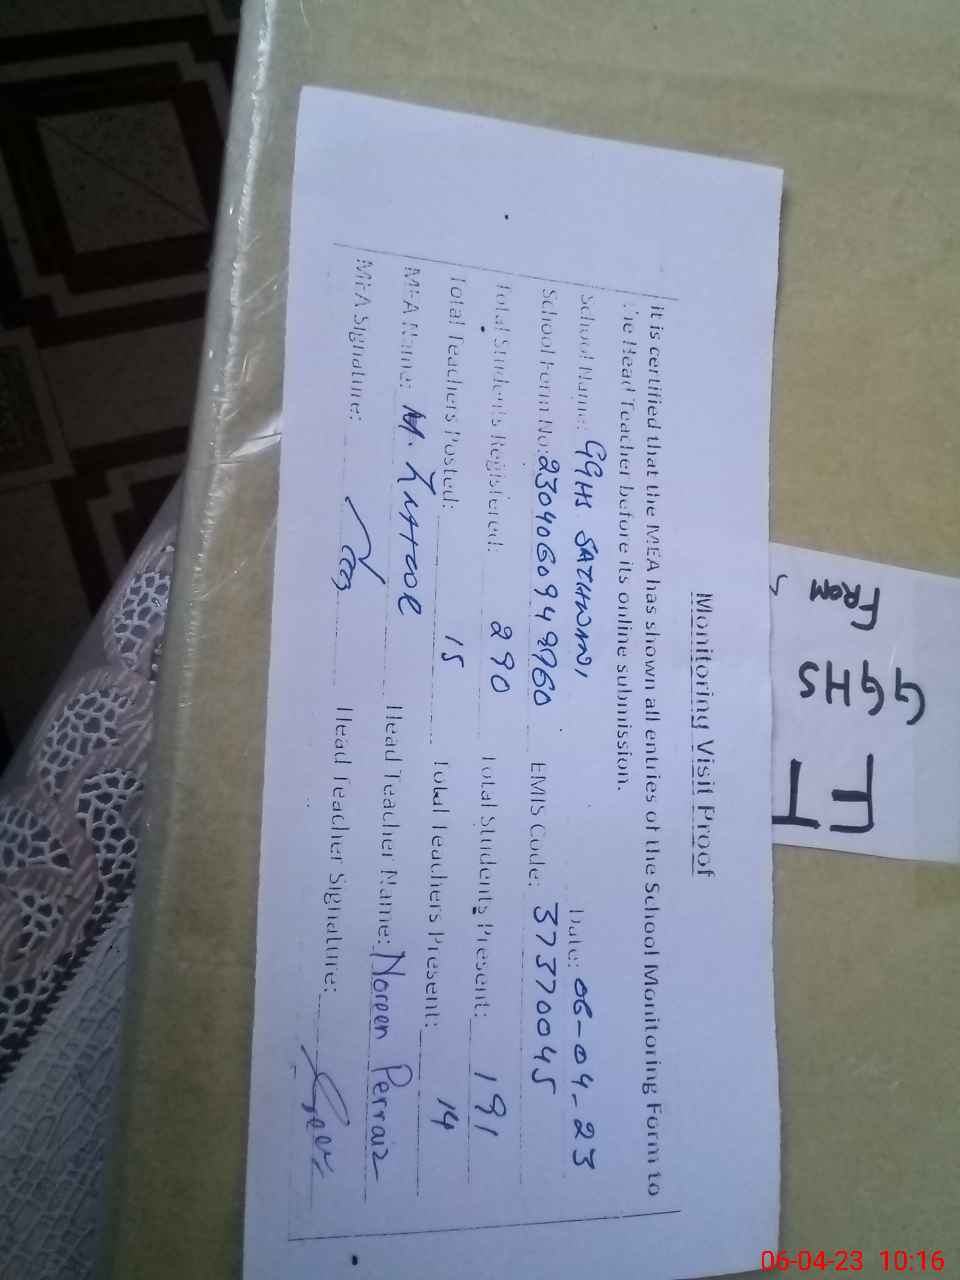 Monitoring Visit Proof
It is certified that the MEA has shown all entries of the School Monitoring Form to
the Head Teacher before its online submission.
School Name: GGHS Date: 06-04-23
School Form No: EMIS Code: 37370045
Total Students Registered: 290 Total Students Present: 191
Total Teachers Posted: 15 Total Teachers Present: 14
MEA Name: M. Head Teacher Name: Noreen Perraiz
MEA Signature: Head Teacher Signature:
FROM
GGHS
06-04-23 10:16